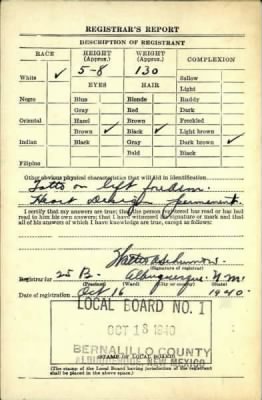 REGISTRAR'S REPORT
DESCRIPTION OF REGISTRANT
RACE HEIGHT (Approx.) WEIGHT (Approx.) COMPLEXION
White ✓ 5-8 130 Sallow
EYES HAIR Light
Negro Blue Blonde Ruddy
Gray Red Dark
Oriental Hazel Brown Freckled
Brown ✓ Black ✓ Light brown
Indian Black Gray Dark brown ✓
Bald Black
Filipino
Other obvious physical characteristics that will aid in identification
on left
Heart
I certify that my answers are true; that the person registered has read or has had
read to him his own answers; that I have witnessed his signature or mark and that
all of his answers of which I have knowledge are true, except as follows:
(Signature of registrar)
Registrar for 25 B. Albuquerque N.M.
(Precinct) (Ward) (City or county) (State)
Date of registration Oct 16 1940
LOCAL BOARD NO. 1
OCT 1940
BERNALILLO COUNTY
ALBUQUERQUE, NEW MEXICO
(STAMP OF LOCAL BOARD)
(The stamp of the Local Board having jurisdiction of the registrant
shall be placed in the above space.)